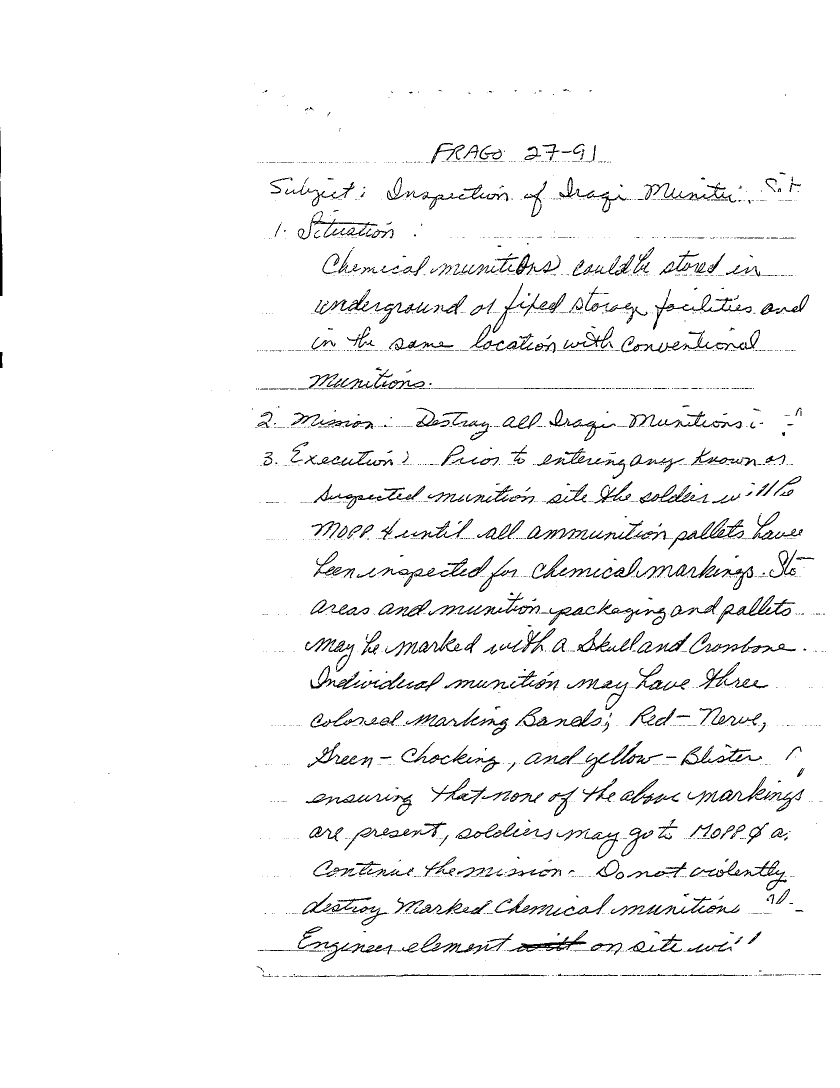 FRAGO 27-91
Subject: Inspection of Iraqi
1. Situation :
Chemical munitions could be stored in
underground or fixed storage facilities and
in the same location with conventional
munitions.
2. Mission: Destroy all Iraqi Munitions
3. Execution: Prior to entering any Known or
suspected munition site the soldier will be
MOPP 4 until all ammunition pallets have
been inspected for chemical markings.
areas and munition packaging and pallets
may be marked with a Skull and Crossbone.
Individual munition may have three
colored marking Bands; Red - Nerve,
Green - Chocking, and yellow - Blister
ensuring that none of the above markings
are present, soldiers may go to MOPP 0
Continue the mission. Do not violently
destroy Marked Chemical munitions
Engineer element with on site will